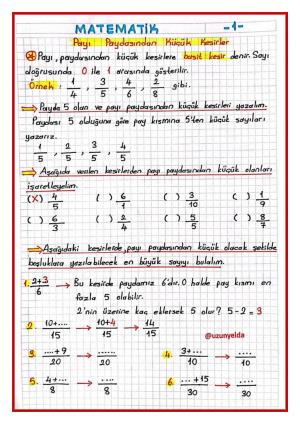 MATEMATİK -1-
Payı Paydasından Küçük Kesirler
Payı, paydasından küçük kesirlere basit kesir denir. Sayı
doğrusunda 0 ile 1 arasında gösterilir.
Örnek : 1/4, 3/5, 4/6, 2/8 gibi.
Payda 5 olan ve payı paydasından küçük kesirleri yazalım.
Paydası 5 olduğuna göre pay kısmına 5'ten küçük sayıları
yazarız.
1/5, 2/5, 3/5, 4/5
Aşağıda verilen kesirlerden payı paydasından küçük olanları
işaretleyelim.
(X) 4/5 ( ) 6/1 ( ) 3/10 ( ) 1/9
( ) 6/3 ( ) 2/4 ( ) 5/5 ( ) 8/7
Aşağıdaki kesirlerde, payı paydasından küçük olacak şekilde
boşluklara yazılabilecek en büyük sayıyı bulalım.
1. 2+3/6 → Bu kesirde paydamız 6'dır. O halde pay kısmı en
fazla 5 olabilir.
2'nin üzerine kaç eklersek 5 olur? 5-2=3
2. 10+..../15 → 10+4/15 → 14/15
@uzunyelda
3. ....+9/20 → ......../20 4. 3+..../10 → ......../10
5. 4+..../8 → ......../8 6. ...+15/30 → ......../30